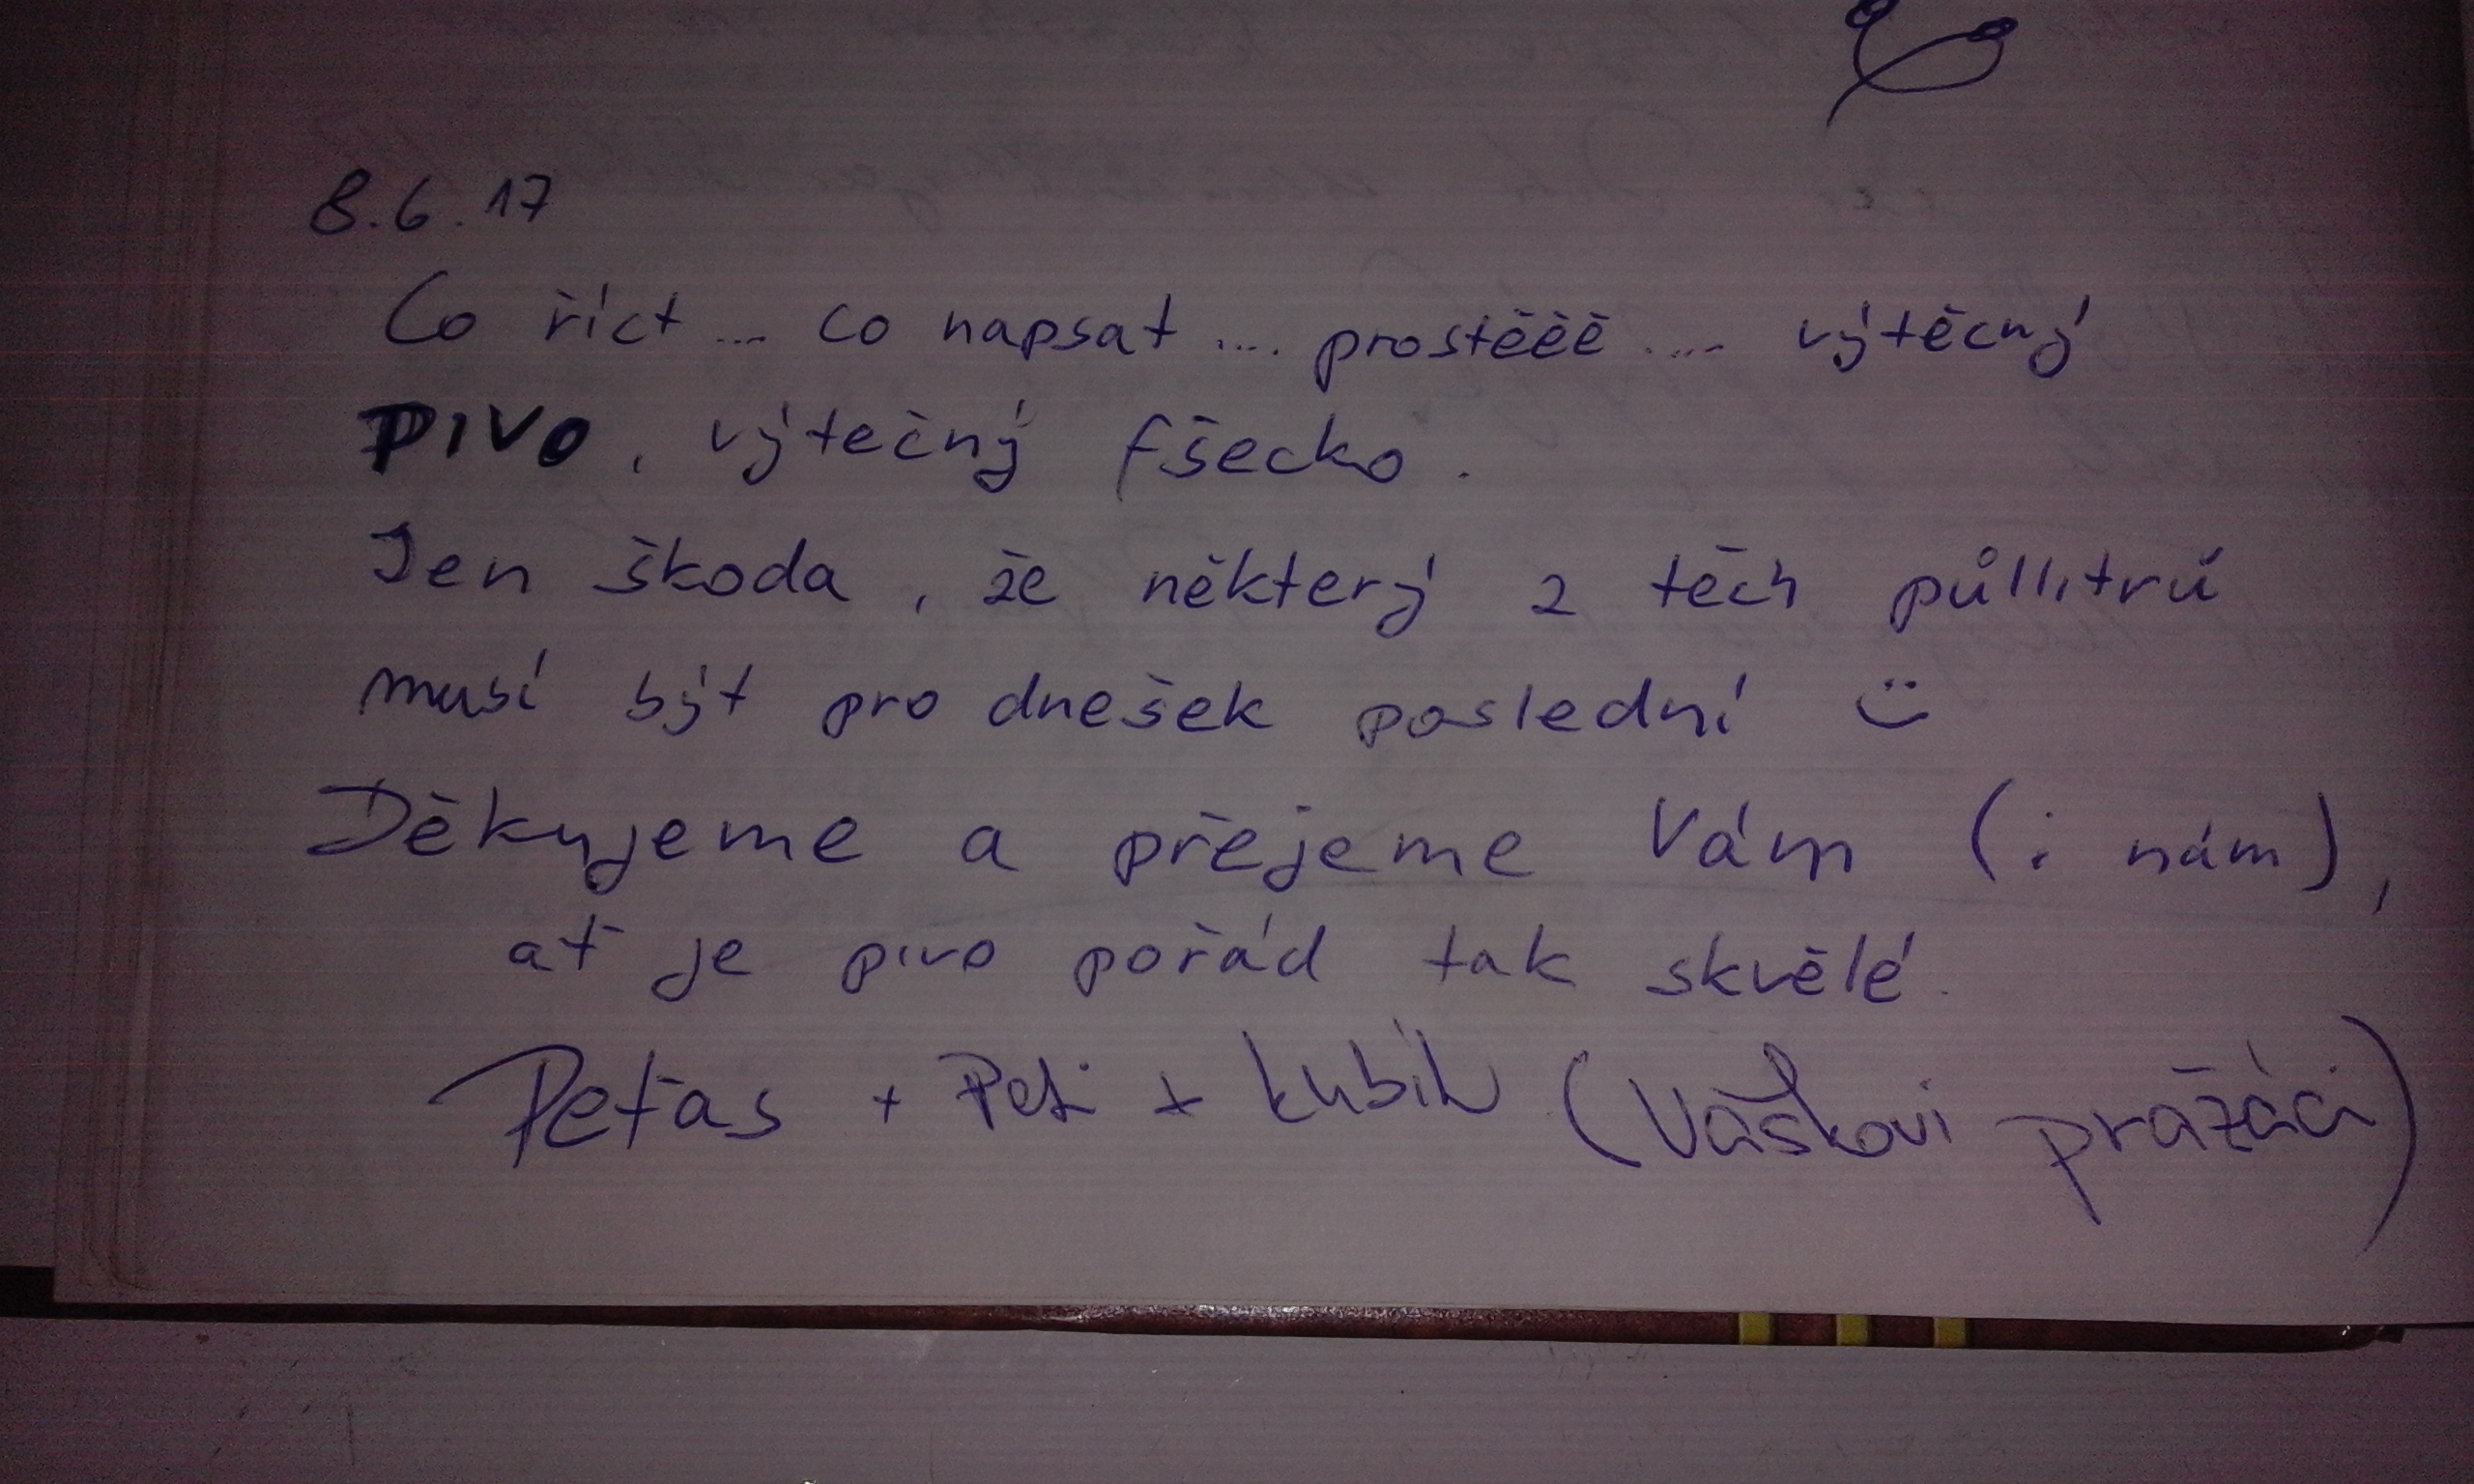 8.6.17
Co říct ... co napsat .... prostěěě .... výtěcný
PIVO, výtečný fšecko.
Jen škoda, že některý z těch půllitrů
musí být pro dnešek poslední :)
Děkujeme a přejeme Vám (i nám),
ať je pivo pořád tak skvělé.
Peťas + Peti + Kubík (Váškovi pražáci)